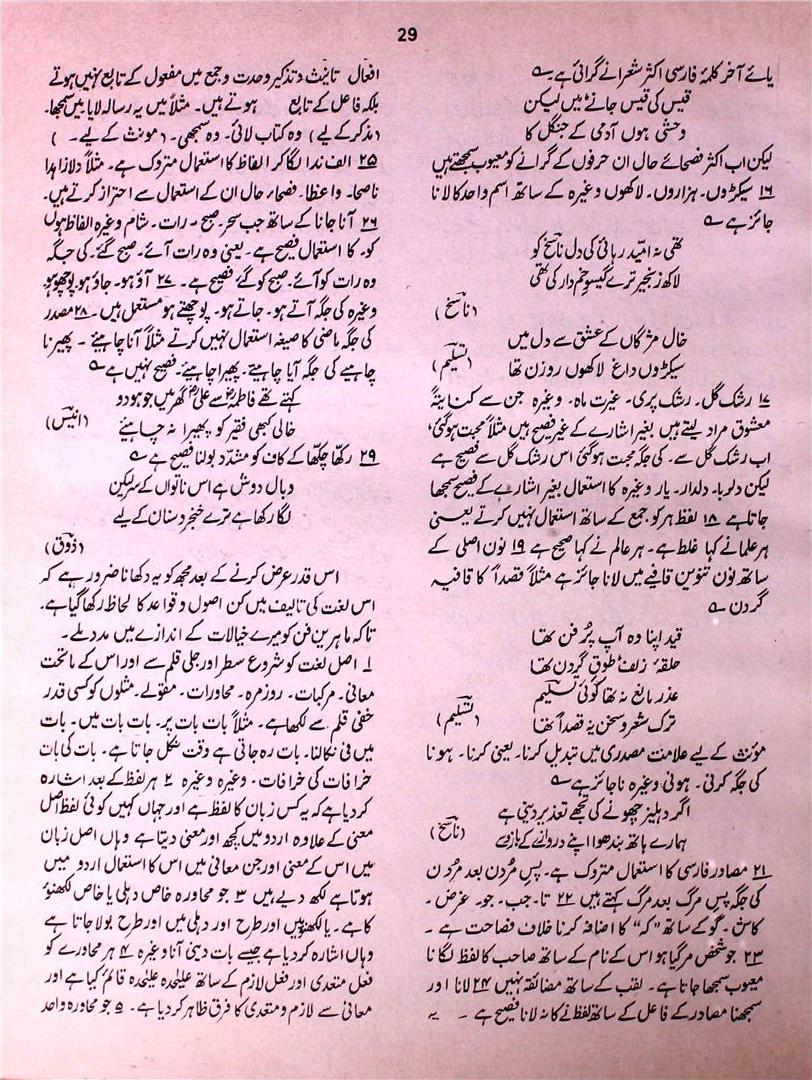 29
یائے آخر کلمۂ فارسی اکثر شعرا نے گرائی ہے ؎
قیس کی قیس جانے میں لیکن
وحشی ہوں آدمی کے جنگل کا
لیکن اب اکثر فصحائے حال ان حرفوں کے گرانے کو معیوب سمجھتے ہیں
۱۶ سیکڑوں۔ ہزاروں۔ لاکھوں وغیرہ کے ساتھ اسم واحد کا لانا
جائز ہے ؎
تھی نہ امّید رہائی کی دل ناسخ کو
لاکھ زنجیر ترے گیسوئے خم دار کی تھی
(ناسخ)
خال مژگاں کے عشق سے دل میں
سیکڑوں داغ لاکھوں روزن تھا (تسلیم)
۱۷ رشک گل۔ رشک پری۔ غیرت ماہ۔ وغیرہ جن سے کنایتہً
معشوق مراد لیتے ہیں بغیر اشارے کے غیر فصیح ہیں مثلاً محبت ہوگئی،
اب رشک گل سے۔ کی جگہ محبت ہوگئی اس رشک گل سے فصیح ہے
لیکن دلربا۔ دلدار۔ یار وغیرہ کا استعمال بغیر اشارے کے فصیح سمجھا
جاتا ہے ۱۸ لفظ ہر کو جمع کے ساتھ استعمال نہیں کرتے یعنی
ہر علما نے کہا غلط ہے۔ ہر عالم نے کہا صحیح ہے ۱۹ نون اصلی کے
ساتھ نون تنوین قافیے میں لانا جائز ہے مثلاً قصداً کا قافیہ
گردن ؎
قید اپنا وہ آپ پُر فن تھا
حلقۂ زلف طوق گردن تھا
عذر مانع نہ تھا کوئی تسلیم
ترک شعر و سخن یہ قصداً تھا (تسلیم)
مؤنث کے لیے علامت مصدری میں تبدیل کرنا۔ یعنی کرنا۔ ہونا
کی جگہ کرنی۔ ہونی وغیرہ ناجائز ہے ؎
اگر دہلیز چھونے کی تجھے تعذیر دینی ہے
ہمارے ہاتھ بندھوا اپنے دروازے کے بازو سے (ناسخ)
۲۱ مصادر فارسی کا استعمال متروک ہے۔ پس مُردن بعد مُردن
کی جگہ پس مرگ بعد مرگ کہتے ہیں ۲۲ تا۔ جب۔ جو۔ عرض۔
کاش۔ گو کے ساتھ "کہ" کا اضافہ کرنا خلاف فصاحت ہے۔
۲۳ جو شخص مرگیا ہو اس کے نام کے ساتھ صاحب کا لفظ لگانا
معیوب سمجھا جاتا ہے۔ لقب کے ساتھ مضائقہ نہیں ۲۴ لانا اور
سمجھنا مصادر کے فاعل کے ساتھ لفظ نے کا نہ لانا فصیح ہے۔ یہ
افعال تانیث و تذکیر وحدت و جمع میں مفعول کے تابع نہیں ہوتے
بلکہ فاعل کے تابع ہوتے ہیں۔ مثلاً میں یہ رسالہ لایا میں سمجھا۔
(مذکر کے لیے) وہ کتاب لائی۔ وہ سمجھی۔ (مونث کے لیے۔)
۲۵ الف ندا لگا کر الفاظ کا استعمال متروک ہے۔ مثلاً دلا زاہدا
ناصحا۔ واعظا۔ فصحاء حال ان کے استعمال سے احتراز کرتے ہیں۔
۲۶ آنا جانا کے ساتھ جب سحر۔ صبح۔ رات۔ شام وغیرہ الفاظ ہوں
کو۔ کا استعمال فصیح ہے۔ یعنی وہ رات آئے۔ صبح گئے۔ کی جگہ
وہ رات کو آئے۔ صبح کو گئے فصیح ہے۔ ۲۷ آؤ ہو۔ جاؤ ہو۔ پوچھو ہو
وغیرہ کی جگہ آتے ہو۔ جاتے ہو۔ پوچھتے ہو مستعمل ہیں۔ ۲۸ مصدر
کی جگہ ماضی کا صیغہ استعمال نہیں کرتے مثلاً آنا چاہیئے۔ پھیرنا
چاہیے کی جگہ آیا چاہیئے۔ پھیرا چاہیئے۔ فصیح نہیں ہے ؎
کہتے تھے فاطمہؓ سے علیؓ گھر میں جو ہو دو
خالی کبھی فقیر کو پھیرا نہ چاہیئے (انیس)
۲۹ رکھّا چکھّا کے کاف کو مشدّد بولنا فصیح ہے ؎
وبال دوش ہے اس ناتواں کے سر لیکن
لگا رکھا ہے ترے خنجر و سناں کے لیے
(ذوق)
اس قدر عرض کرنے کے بعد مجھ کو یہ دکھانا ضرور ہے کہ
اس لغت کی تالیف میں کن اصول و قواعد کا لحاظ رکھا گیا ہے۔
تاکہ ماہرین فن کو میرے خیالات کے اندازے میں مدد ملے۔
۱ اصل لغت کو شروع سطر اور جلی قلم سے اور اس کے ماتحت
معانی۔ مرکبات۔ روزمرہ۔ محاورات۔ مقولے۔ مثلوں کو کسی قدر
خفی قلم سے لکھا ہے۔ مثلاً بات بات پر۔ بات بات میں۔ بات
میں فی نکالنا۔ بات رہ جاتی ہے وقت نکل جاتا ہے۔ بات کی بات
خرافات کی خرافات۔ وغیرہ وغیرہ ۲ ہر لفظ کے بعد اشارہ
کر دیا ہے کہ یہ کس زبان کا لفظ ہے اور جہاں کہیں کوئی لفظ اصل
معنی کے علاوہ اردو میں کچھ اور معنی دیتا ہے وہاں اصل زبان
میں اس کے معنی اور جن معانی میں اس کا استعمال اردو میں
ہوتا ہے لکھ دیے ہیں ۳ جو محاورہ خاص دہلی یا خاص لکھنؤ
کا ہے۔ یا لکھنؤ میں اور طرح اور دہلی میں اور طرح بولا جاتا ہے
وہاں اشارہ کر دیا ہے جیسے بات دینی آنا وغیرہ ۴ ہر محاورے کو
فعل متعدی اور فعل لازم کے ساتھ علیٰحدہ علیٰحدہ قائم کیا ہے اور
معانی سے لازم و متعدی کا فرق ظاہر کر دیا ہے۔ ۵ جو محاورہ واحد